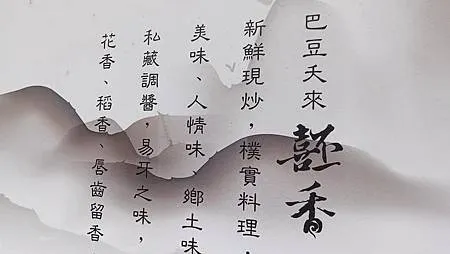 巴豆夭來
嚭香
新鮮現炒，樸實料理，
美味、人情味、鄉土味
私藏調醬，易牙之味，
花香、稻香、唇齒留香